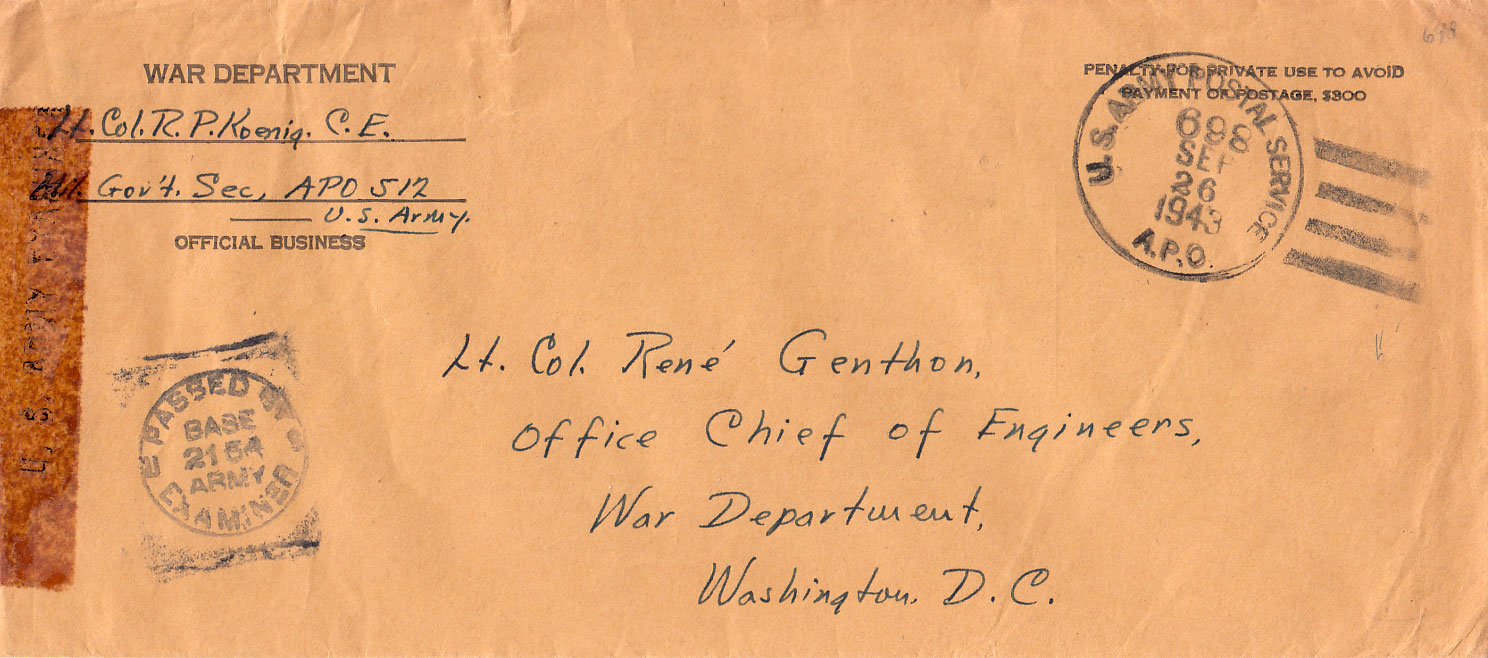 WAR DEPARTMENT
Lt. Col. R. P. Koenig. C. E.
Mil. Gov't. Sec, APO 512
U.S. Army.
OFFICIAL BUSINESS
PENALTY FOR PRIVATE USE TO AVOID
PAYMENT OF POSTAGE, $300
U.S. ARMY POSTAL SERVICE
698
SEP
26
1943
A.P.O.
698
U. S. ARMY EXAMINER
PASSED BY
BASE
2154
ARMY
EXAMINER
Lt. Col. René Genthon,
Office Chief of Engineers,
War Department,
Washington. D. C.